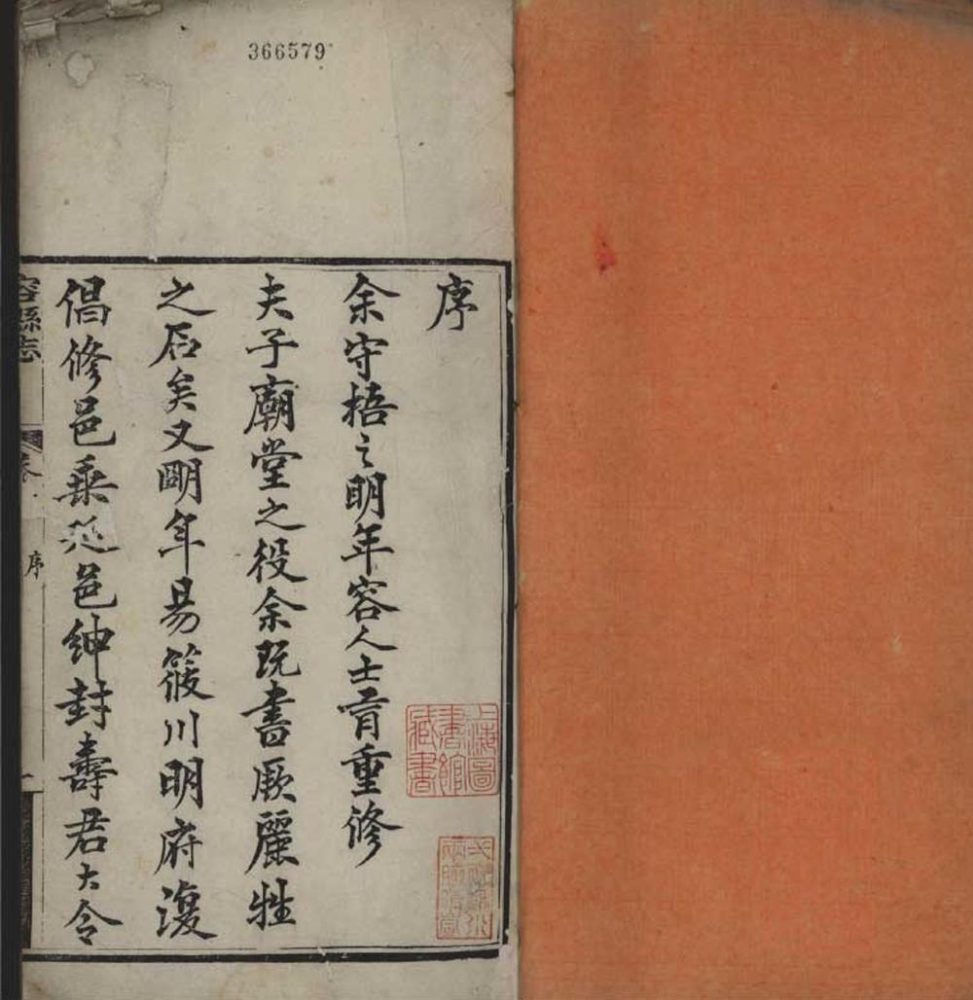 366579
序
余守梧之明年容人士有重修
夫子廟堂之役余既書厥麗牲
之石矣又明年易筱川明府復
倡修邑乘延邑紳封壽君大令
容縣志
卷
序
一
上海圖
書館
藏書